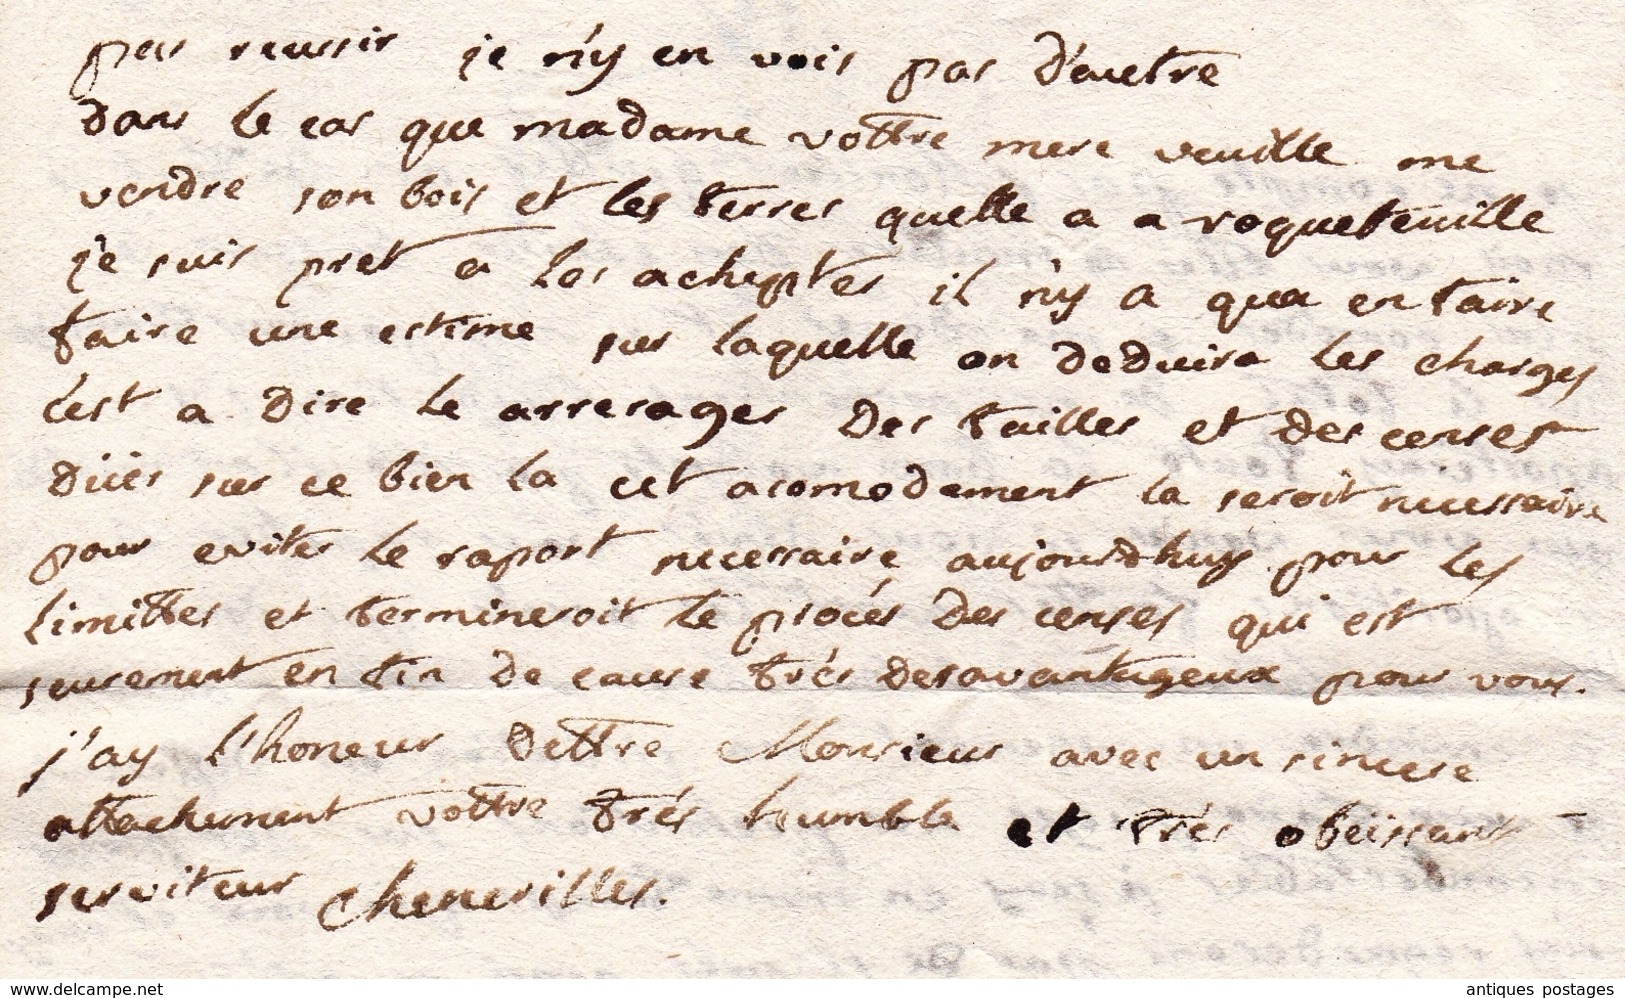 pas reussir je n'y en vois pas d'autre
dans le cas que madame vottre mere veuille me
vendre son bois et les terres quelle a a roqueteuille
je suis pret a les achepter il n'y a qua en faire
faire une estime sur laquelle on deduira les charges
c'est a dire le arrerages des tailles et des censes
dües sur ce bien la cet acomodement la seroit necessaire
pour eviter le raport necessaire aujourdhuy pour les
limittes et termineroit le procés des censes qui est
seurement en fin de cause trés desavantageux pour vous.
j'ay l'honeur dettre Monsieur avec un sincere
attachement vottre trés humble et trés obeïssant
serviteur chenevilles.
www.delcampe.net
antiques postages